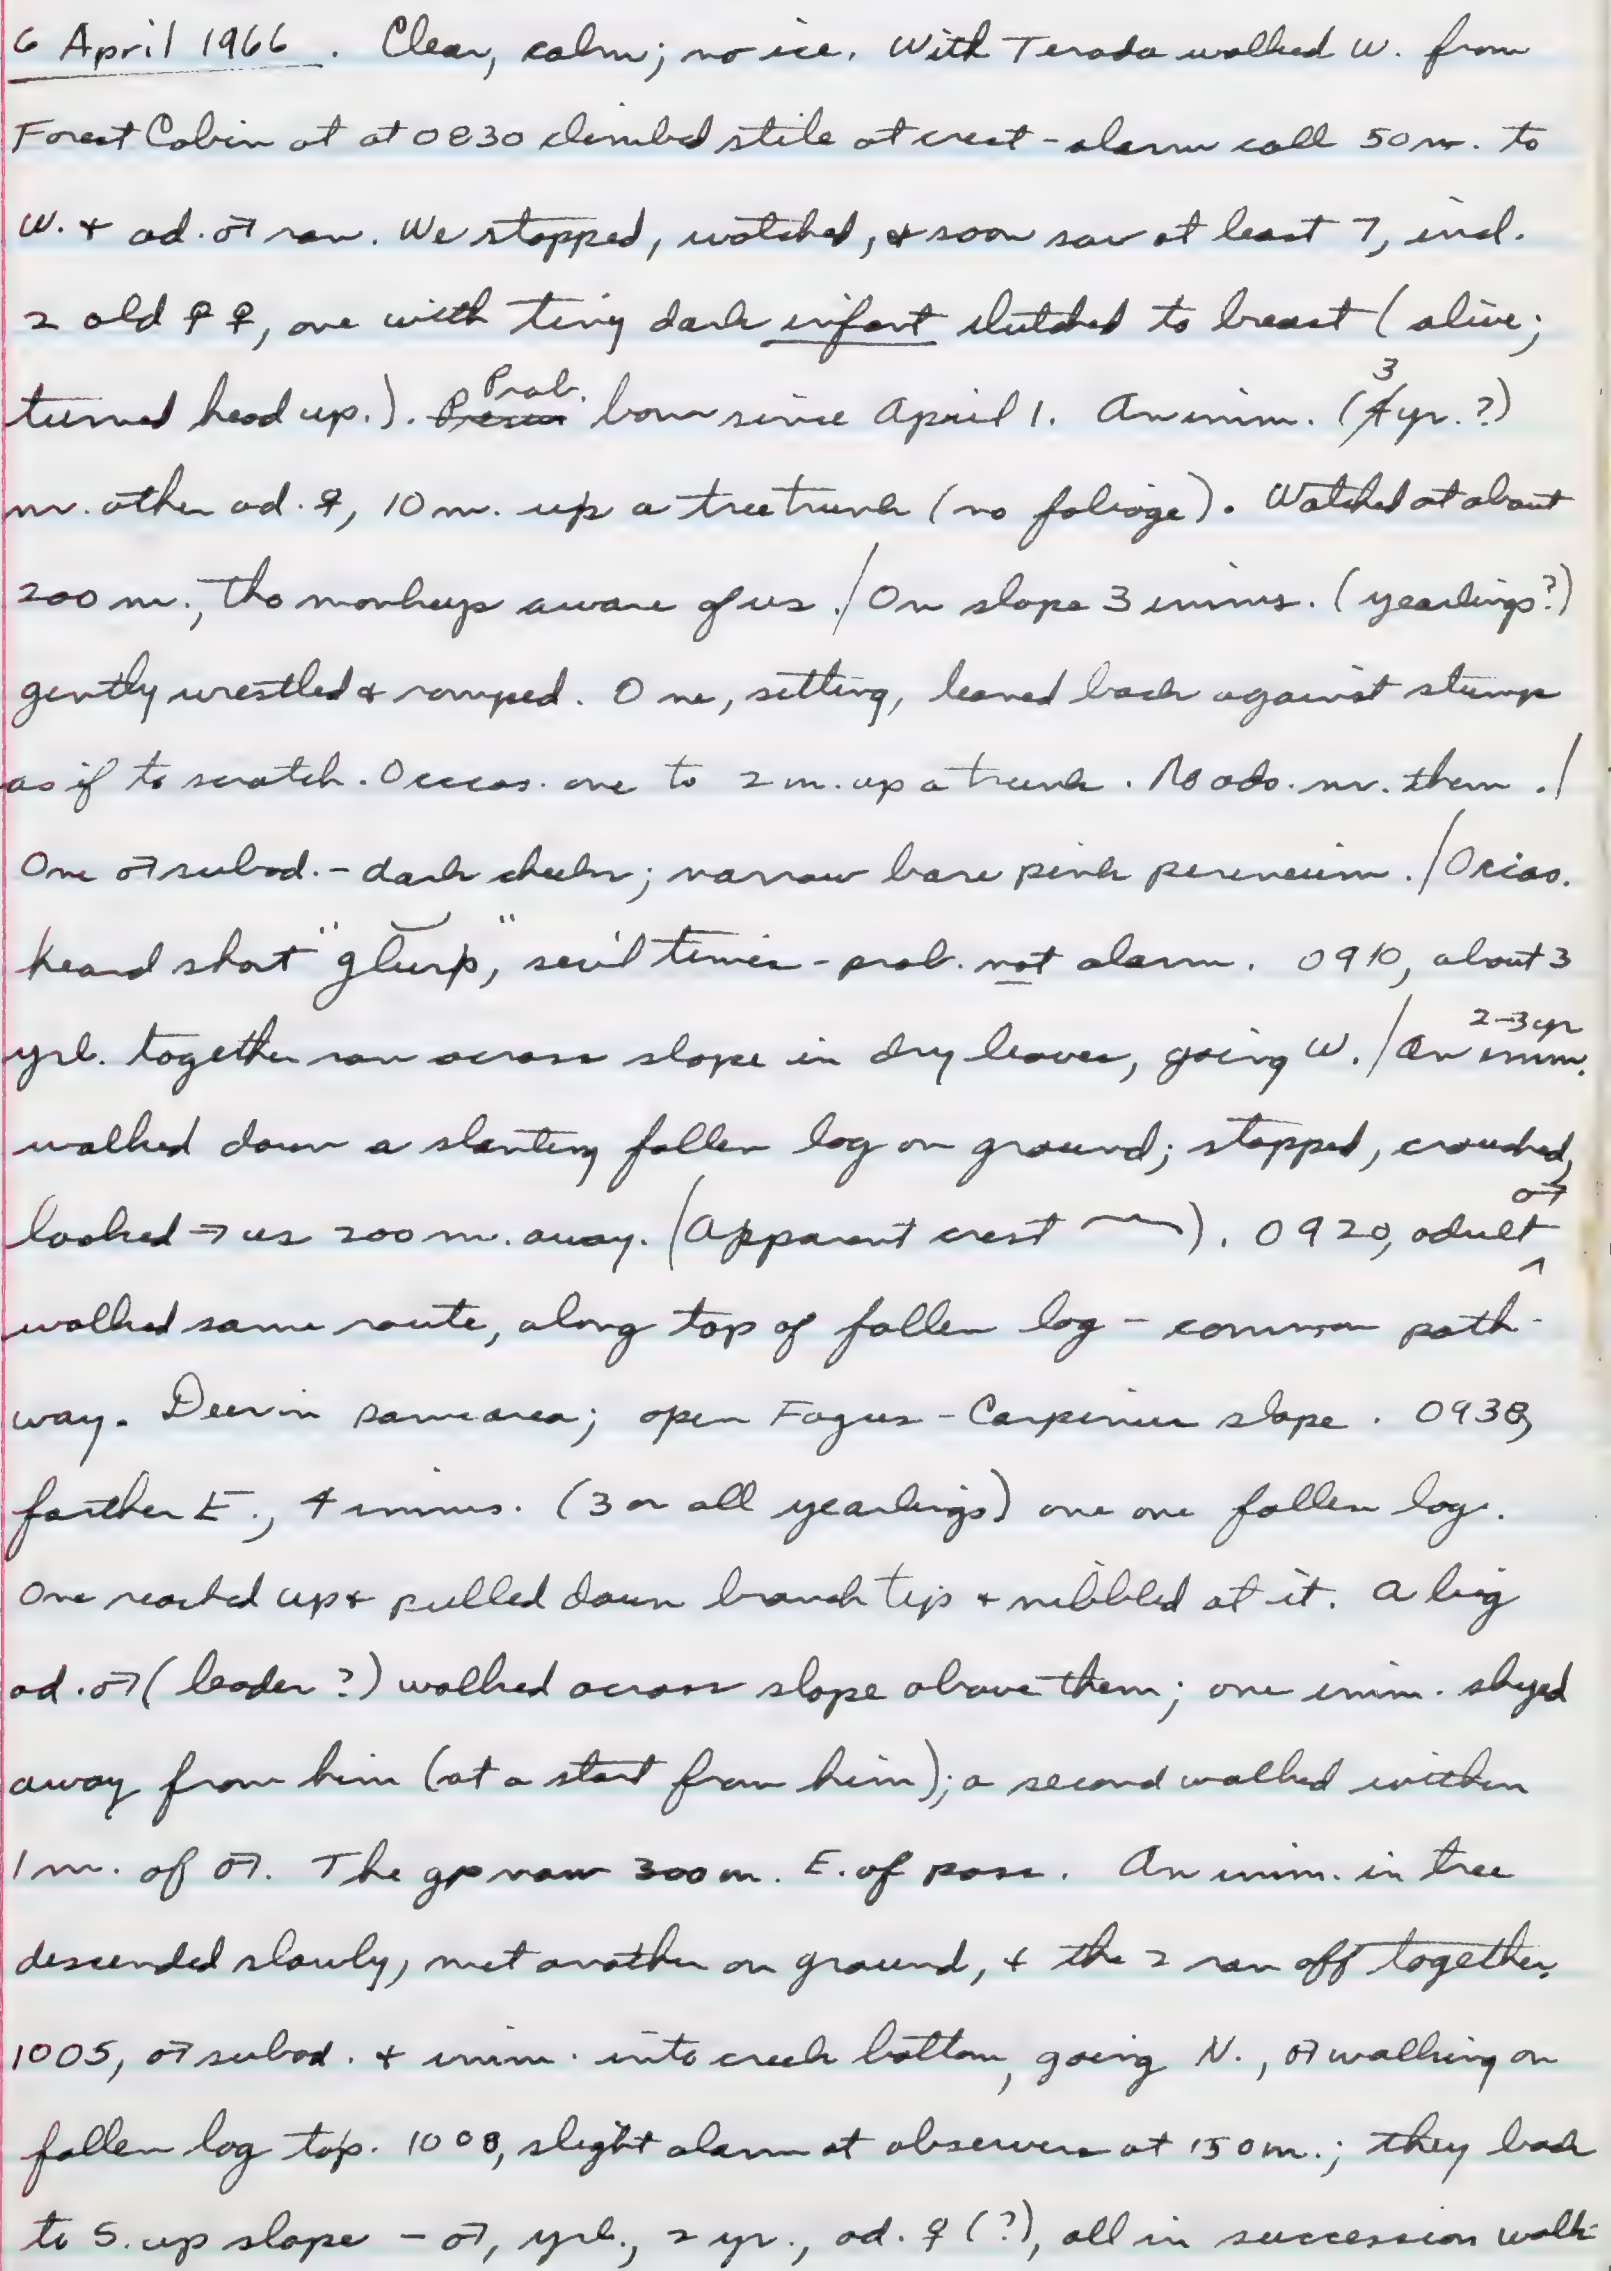 6 April 1966. Clear, calm; no ice. With Terada walked W. from
Forest Cabin at at 0830 climbed stile at crest - alarm call 50 m. to
W. & ad. ♂ ran. We stopped, watched, & soon saw at least 7, incl.
2 old ♀♀, one with tiny dark infant clutched to breast (alive;
turned head up.). Prob. born since April 1. An imm. (3 yr.?)
nr. other ad. ♀, 10 m. up a tree trunk (no foliage). Watched at about
200 m., tho monkeys aware of us. / On slope 3 imms. (yearlings?)
gently wrestled & romped. One, sitting, leaned back against stump
as if to scratch. Occas. one to 2 m. up a trunk. No ads. nr. them. /
One ♂ subad. - dark cheeks; narrow bare pink pereneum. / Occas.
heard short "glurp," sev'l times - prob. not alarm. 0910, about 3
yrl. together ran across slope in dry leaves, going W. / An 2-3 yr imm.
walked down a slanting fallen log on ground; stopped, crouched,
looked → us 200 m. away. (Apparent crest). 0920, adult ♂
walked same route, along top of fallen log - common path-
way. Deer in same area; open Fagus - Carpinus slope. 0938,
farther E., 4 imms. (3 or all yearlings) one one fallen log.
One reached up & pulled down branch tip & nibbled at it. A big
ad. ♂ (leader?) walked across slope above them; one imm. shyed
away from him (at a start from him); a second walked within
1 m. of ♂. The gp now 300 m. E. of pass. An imm. in tree
descended slowly, met another on ground, & the 2 ran off together.
1005, ♂ subad. & imm. into creek bottom, going N., ♂ walking on
fallen log top. 1008, slight alarm at observers at 150 m.; they back
to S. up slope - ♂, yrl., 2 yr., ad. ♀ (?), all in succession walk-